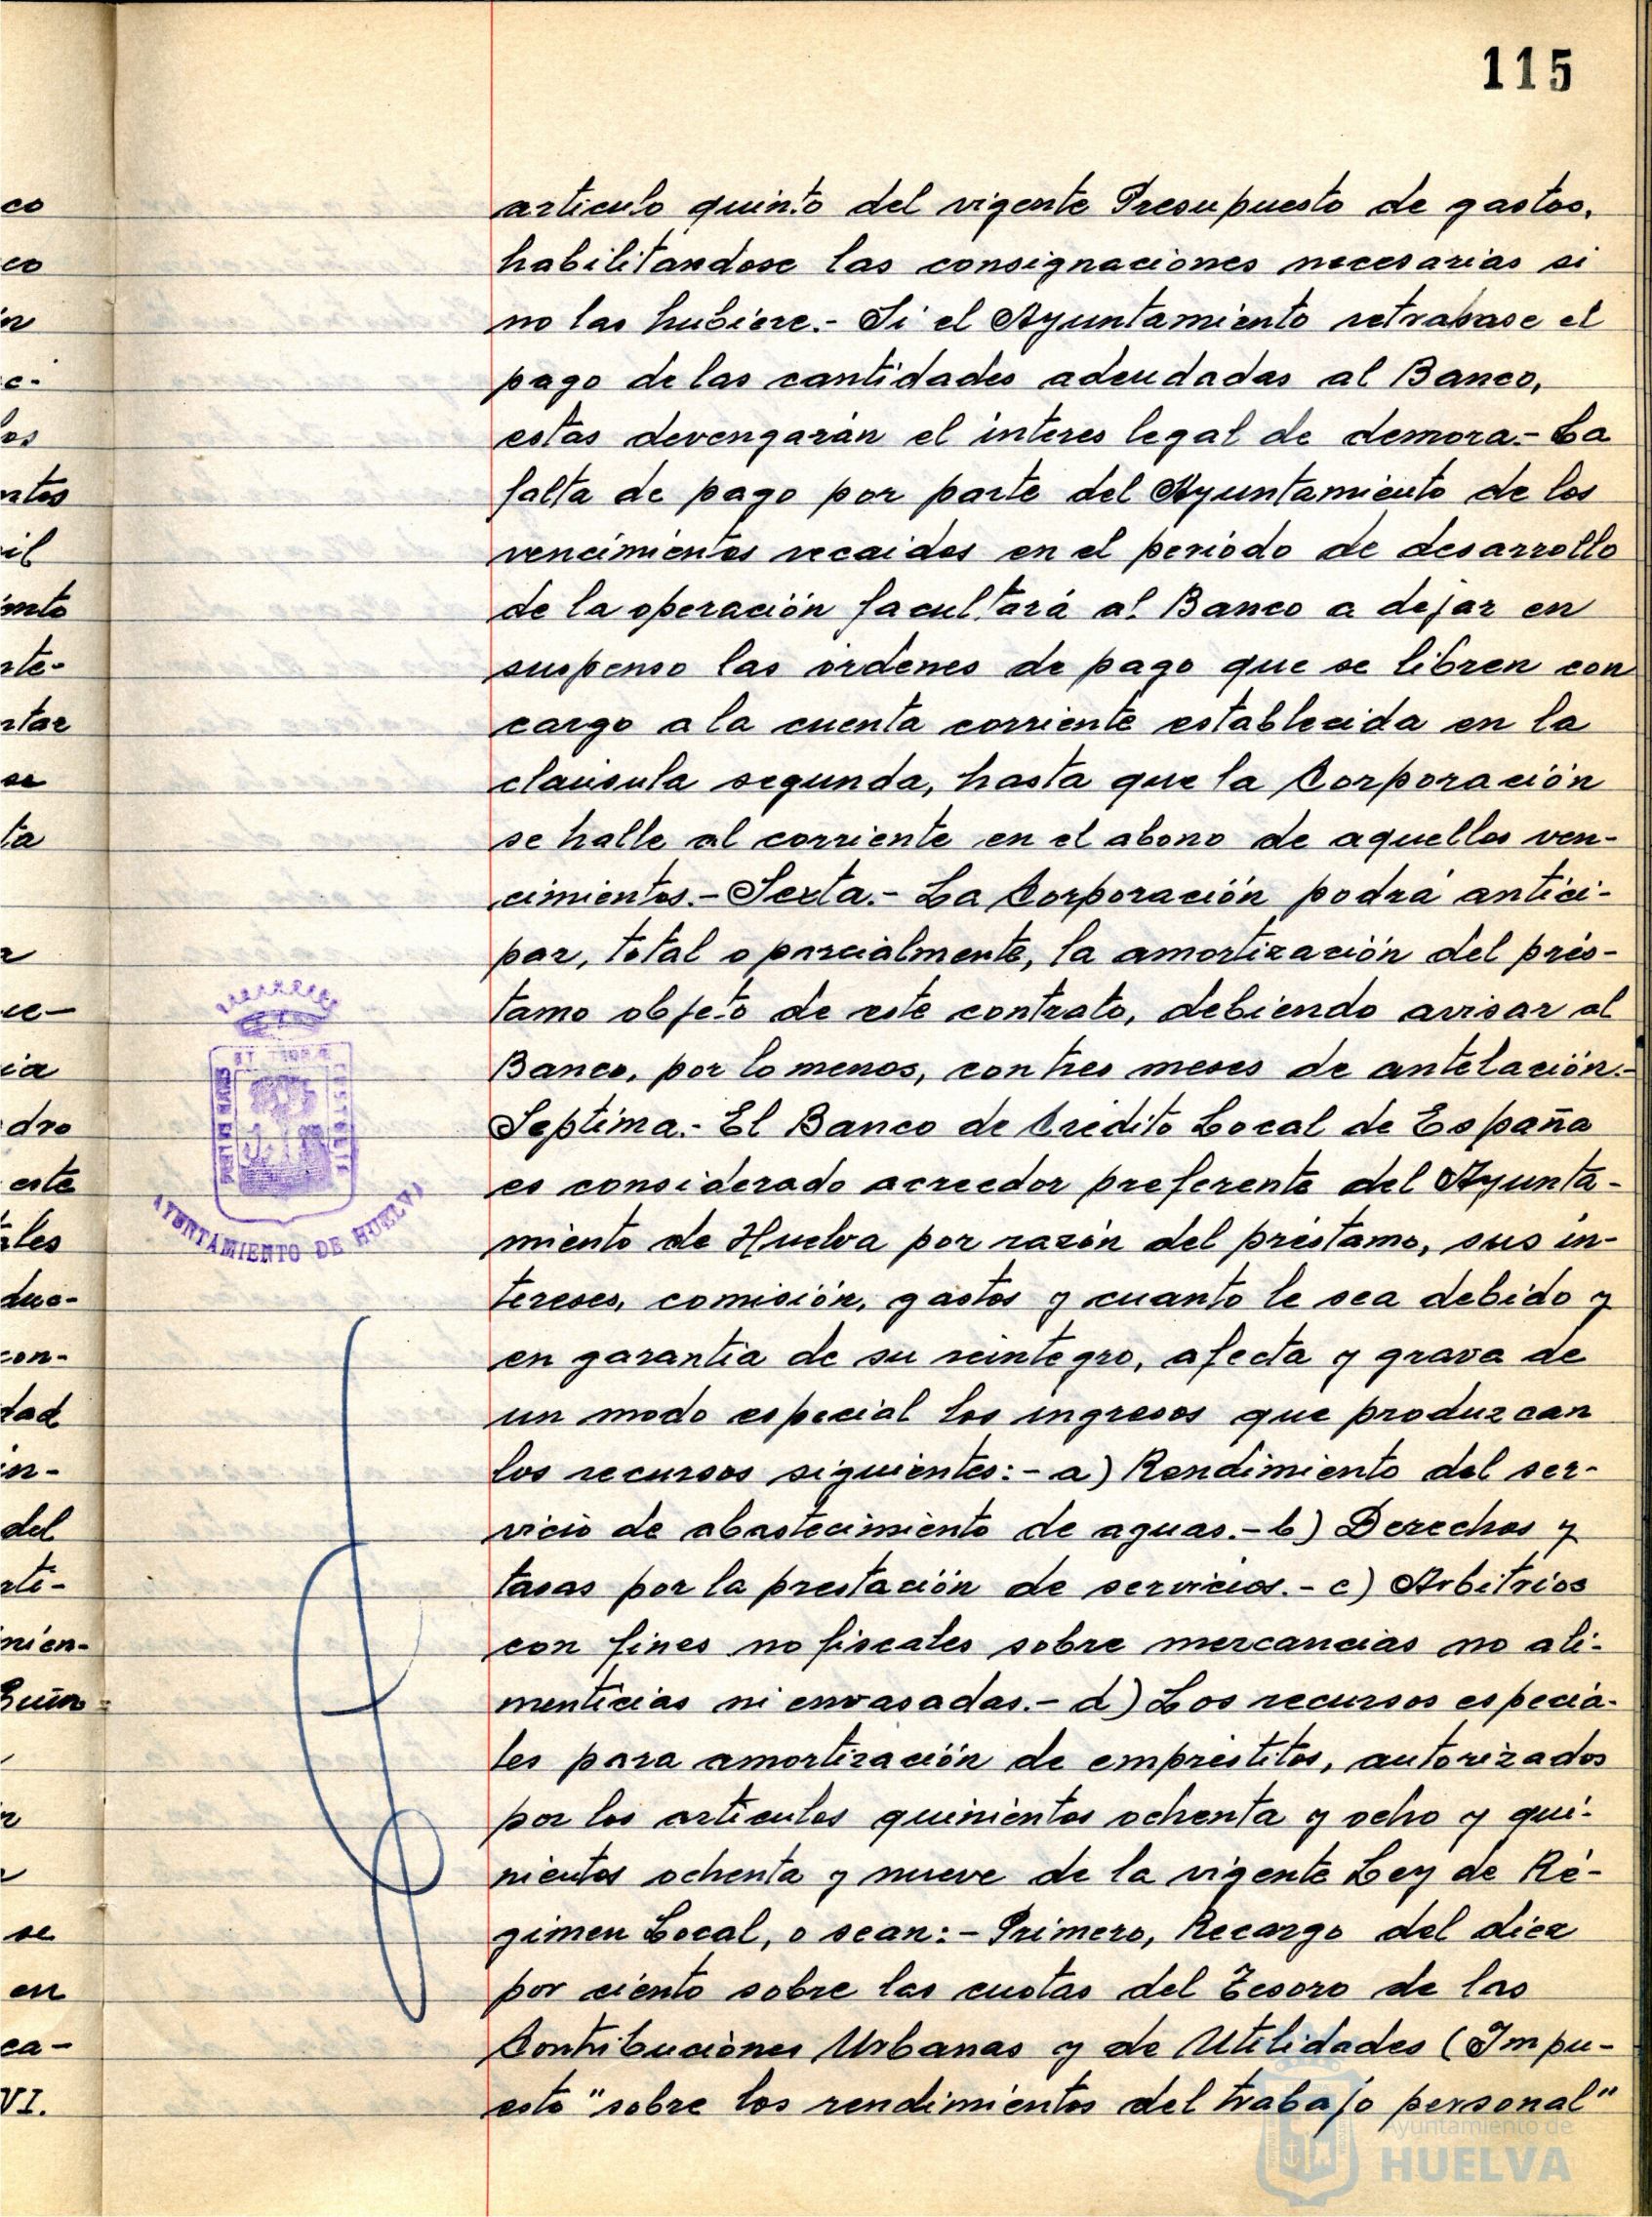 115
articulo quinto del vigente Presupuesto de gastos,
habilitandose las consignaciones necesarias si
no las hubiere.- Si el Ayuntamiento retrasase el
pago de las cantidades adeudadas al Banco,
estas devengarán el interes legal de demora.- La
falta de pago por parte del Ayuntamiento de los
vencimientos recaidos en el periodo de desarrollo
de la operación facultará al Banco a dejar en
suspenso las órdenes de pago que se libren con
cargo a la cuenta corriente establecida en la
claúsula segunda, hasta que la Corporación
se halle al corriente en el abono de aquellos ven-
cimientos.- Sexta.- La Corporación podrá antici-
par, total o parcialmente, la amortización del prés-
tamo objeto de este contrato, debiendo avisar al
Banco, por lo menos, con tres meses de antelación.-
Septima.- El Banco de Crédito Local de España
es considerado acreedor preferente del Ayunta-
miento de Huelva por razón del préstamo, sus in-
tereses, comisión, gastos y cuanto le sea debido y
en garantia de su reintegro, afecta y grava de
un modo especial los ingresos que produzcan
los recursos siguientes:- a) Rendimiento del ser-
vicio de abastecimiento de aguas.- b) Derechos y
tasas por la prestación de servicios.- c) Arbitrios
con fines no fiscales sobre mercancias no ali-
menticias ni envasadas.- d) Los recursos especia-
les para amortización de empréstitos, autorizados
por los artículos quinientos ochenta y ocho y qui-
nientos ochenta y nueve de la vigente Ley de Ré-
gimen Local, o sean:- Primero, Recargo del diez
por ciento sobre las cuotas del Tesoro de las
Contribuciones Urbanas y de Utilidades (Impu-
esto "sobre los rendimientos del trabajo personal"
AYUNTAMIENTO DE HUELVA
co
co
in
c-
los
ntos
il
imto
nte-
ntar
se
ta
ia
dro
este
les
duc-
con-
dad
in-
del
nti-
mien-
se
en
ca-
VI.
Ayuntamiento de
HUELVA